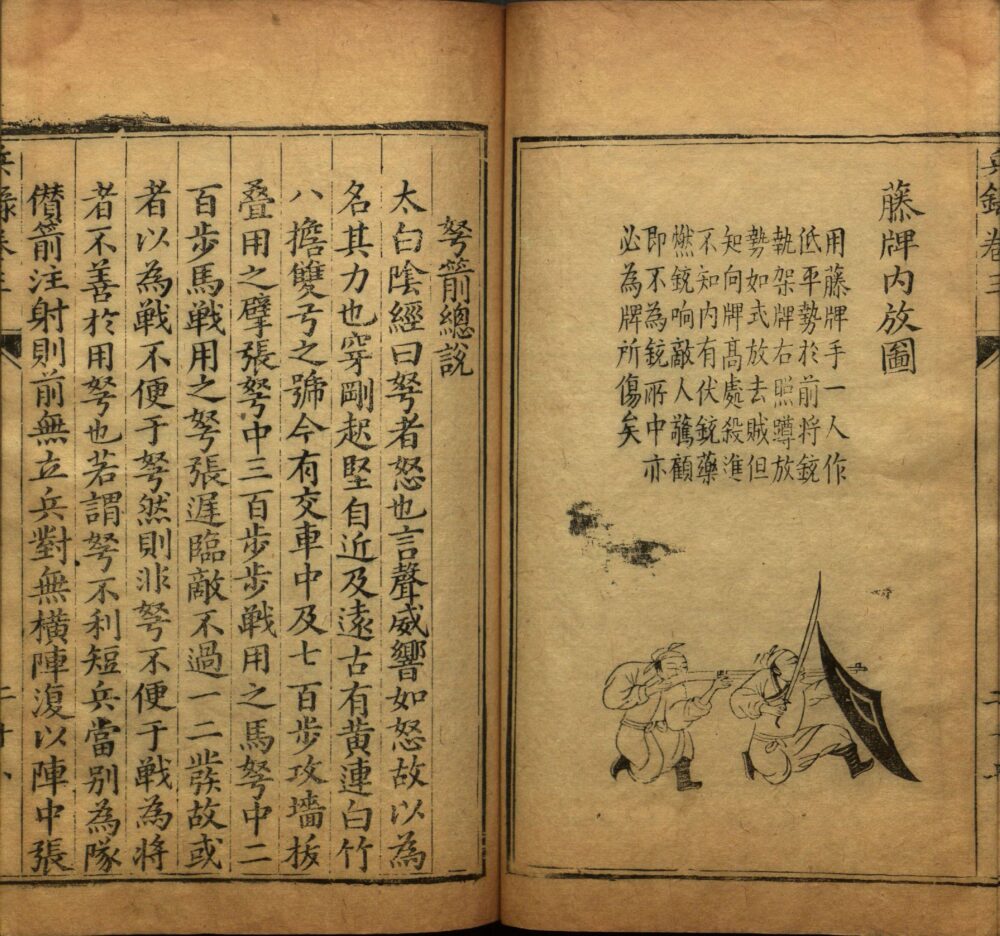 兵錄卷三
藤牌内放圖
用藤牌手一人作
低平勢於前將銃
執架牌右照蹲放
勢如式放去賊但
知向牌髙處殺進
不知内有伏銃藥
燃銃响敵人驚顧
即不為銃所中亦
必為牌所傷矣
弩箭總説
太白陰經曰弩者怒也言聲威響如怒故以為
名其力也穿剛起堅自近及遠古有黄連白竹
八擔雙弓之號今有交車中及七百步攻墻拔
叠用之擘張弩中三百步步戦用之馬弩中二
百步馬戦用之弩張遲臨敵不過一二發故或
者以為戦不便于弩然則非弩不便于戦為將
者不善於用弩也若謂弩不利短兵當别為隊
儹箭注射則前無立兵對無横陣復以陣中張
兵錄卷三